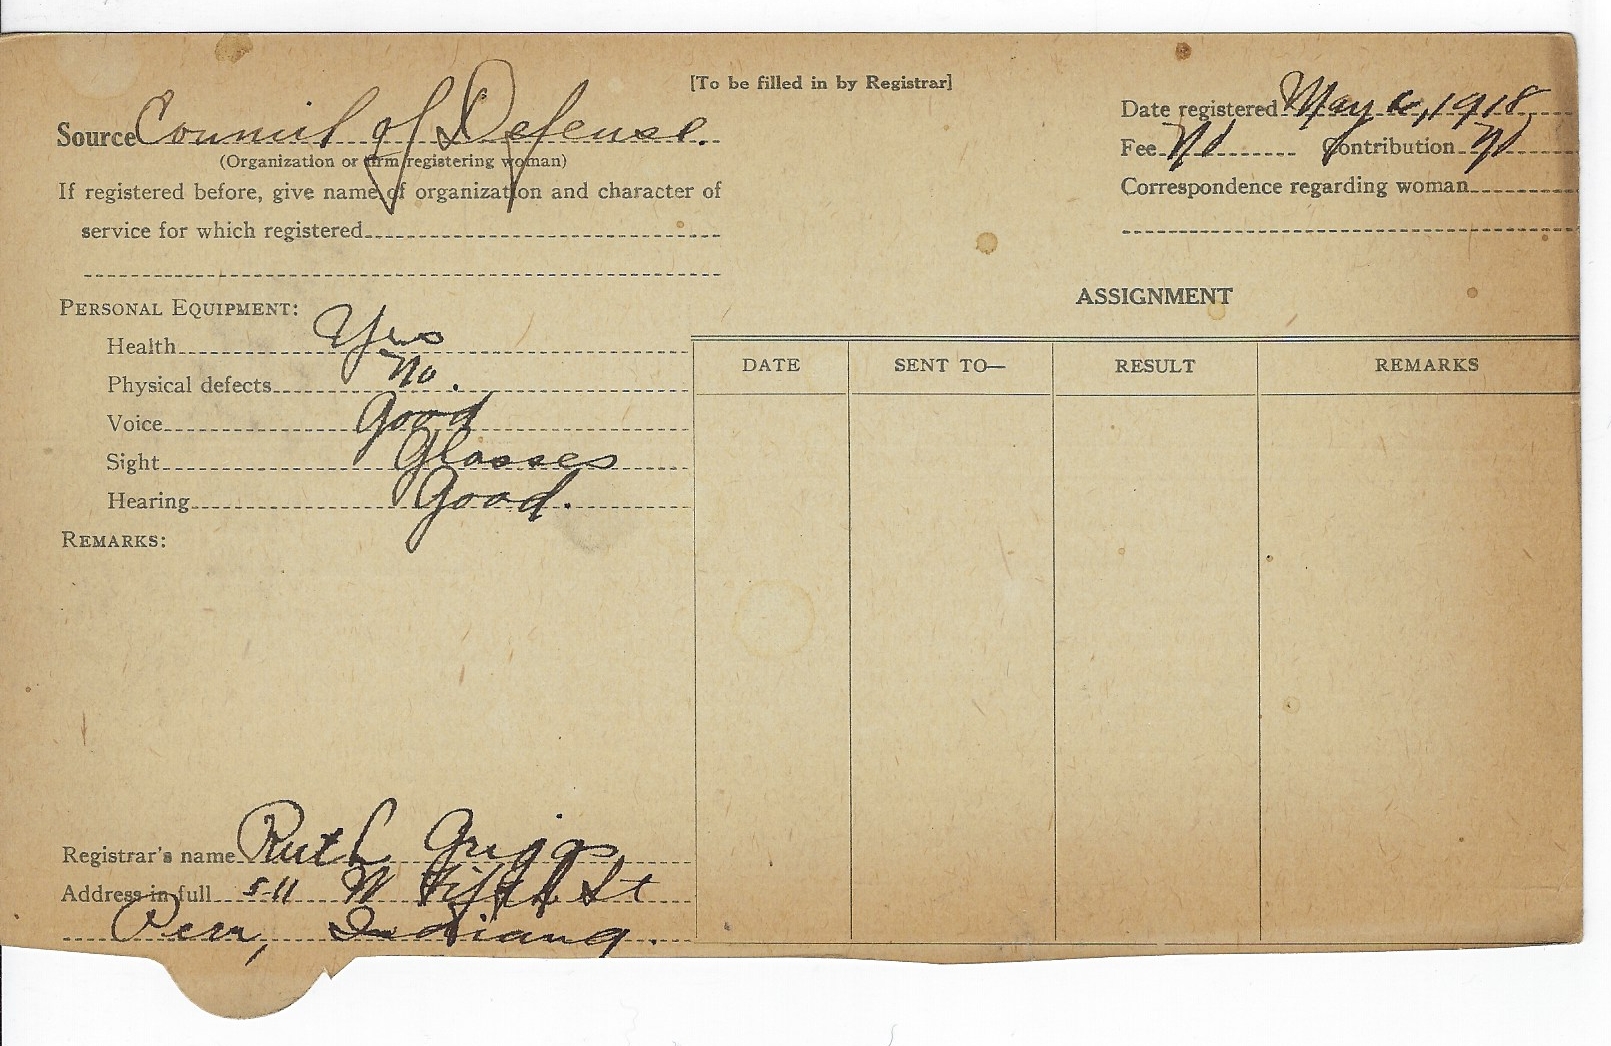 [To be filled in by Registrar]
Source Council of Defense.
(Organization or firm registering woman)
If registered before, give name of organization and character of
service for which registered
Date registered May 6, 1918
Fee No Contribution No
Correspondence regarding woman
PERSONAL EQUIPMENT:
Health Yes
Physical defects No.
Voice Good
Sight Glasses
Hearing Good.
REMARKS:
ASSIGNMENT
DATE SENT TO— RESULT REMARKS
Registrar's name Ruth Griggs
Address in full 511 W Fifth St
Peru, Indiana.